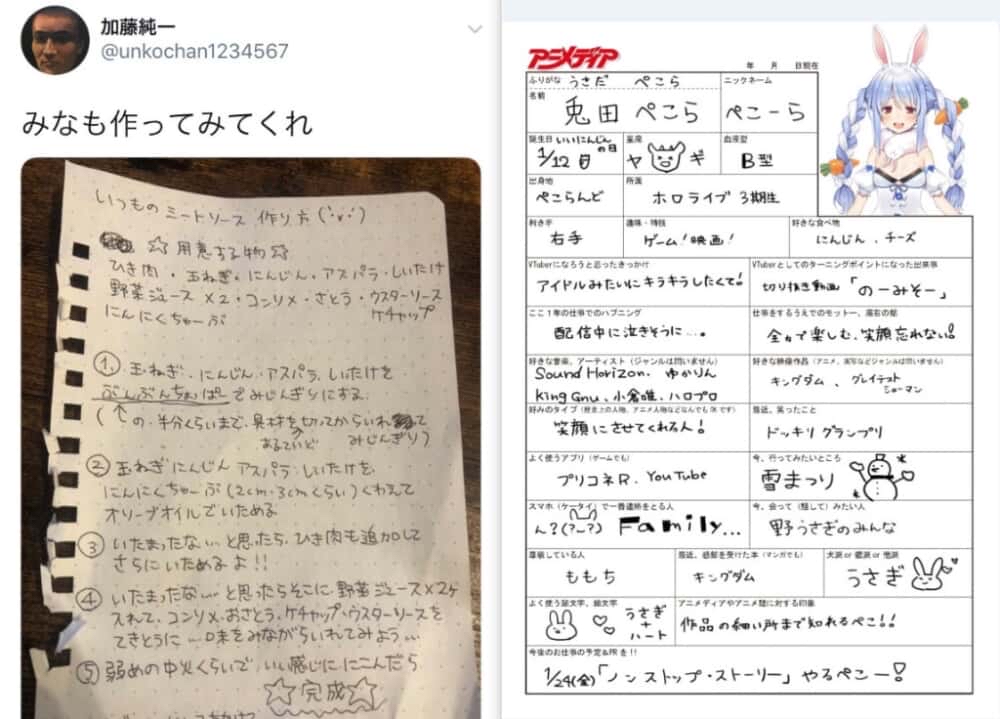 加藤純一
@unkochan1234567
みなも作ってみてくれ
いつものミートソース 作り方('v')
☆用意する物☆
ひき肉・玉ねぎ・にんじん・アスパラ・しいたけ
野菜ジュース×2・コンソメ・さとう・ウスターソース
ケチャップ
にんにくちゅーぶ
① 玉ねぎ・にんじん・アスパラ・しいたけを
ぶんぶんちょぱーでみじんぎりにする
(↑の半分くらいまで、具材を切ってからいれて
あるていど みじんぎり)
② 玉ねぎにんじんアスパラ・しいたけを
にんにくちゅーぶ(2cm・3cmくらい)くわえて
オリーブオイルでいためる
③ いたまったな…と思ったら、ひき肉も追加して
さらにいためるよ!!
④ いたまったな…と思ったらそこに野菜ジュース×2ヶ
入れて、コンソメ・おさとう・ケチャップ・ウスターソースを
てきとうに…味をみながらいれてみよう…
⑤ 弱めの中火くらいで、いい感じににこんだら
☆完成☆
アニメディア
年 月 日現在
ふりがな うさだ ぺこら
ニックネーム
名前 兎田ぺこら
ぺこーら
誕生日 いいにんじんの日
1/12日
星座
ヤギ
血液型
B型
出身地
ぺこらんど
所属
ホロライブ 3期生
利き手
右手
趣味・特技
ゲーム!映画!
好きな食べ物
にんじん、チーズ
VTuberになろうと思ったきっかけ
アイドルみたいにキラキラしたくて!
VTuberとしてのターニングポイントになった出来事
切り抜き動画「のーみそー」
ここ1年の仕事でのハプニング
配信中に泣きそうに…。
仕事をするうえでのモットー、座右の銘
全力で楽しむ、笑顔忘れない!
好きな音楽、アーティスト(ジャンルは問いません)
Sound Horizon、ゆかりん
King Gnu、小倉唯、ハロプロ
好きな映像作品(アニメ、実写などジャンルは問いません)
キングダム、グレイテストショーマン
好みのタイプ(歴史上の人物、アニメ人物などなんでもOKです)
笑顔にさせてくれる人!
最近、笑ったこと
ドッキリグランプリ
よく使うアプリ(ゲームでも)
プリコネR、YouTube
今、行ってみたいところ
雪まつり
スマホ(ケータイ)で一番連絡をとる人
ん?(?_?) Family...
今、会って(話して)みたい人
野うさぎのみんな
尊敬している人
ももち
最近、感銘を受けた本(マンガでも)
キングダム
犬派or猫派or他派
うさぎ
よく使う顔文字、絵文字
うさぎ
+
ハート
アニメディアやアニメ誌に対する印象
作品の細い所まで知れるぺこ!!
今後のお仕事の予定&PRを!!
1/24(金)「ノンストップ・ストーリー」やるぺこー!